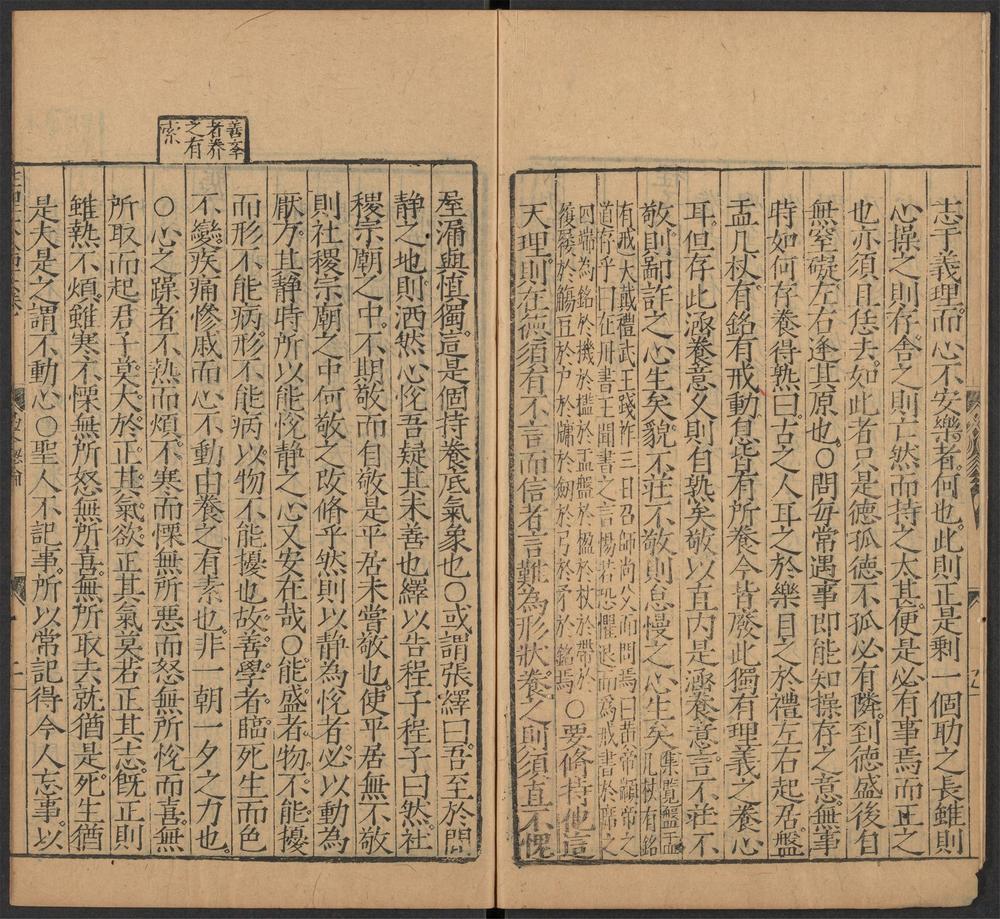 志于義理而心不安樂者何也此則正是剩一個助之長雖則
心操之則存舍之則亡然而持之太甚便是必有事焉而正之
也亦須且恁去如此者只是德孤德不孤必有隣到德盛後自
無窒礙左右逢其原也○問每常遇事即能知操存之意無事
時如何存養得熟曰古之人耳之於樂目之於禮左右起居盤
盂几杖有銘有戒動息皆有所養今皆廢此獨有理義之養心
耳但存此涵養意久則自熟矣敬以直内是涵養意言不莊不
敬則鄙詐之心生矣貌不莊不敬則怠慢之心生矣集覧盤盂
几杖有銘
有戒大戴禮武王踐祚三日召師尚父而問焉曰黄帝顓帝之
道存乎曰在丹書王聞書之言惕若恐懼退而為戒書於席之
四端為銘於機於鑑於盂盤於楹於杖於帶於
履屨於觴豆於户於牖於劒於弓於矛於銘焉
○要脩持他這
天理則在德須有不言而信者言難為形狀養之則須直不愧
善斈
者养
之有
素
屋漏與慎獨這是個持養底氣象也○或謂張繹曰吾至於閒
靜之地則洒然心悅吾疑其未善也繹以告程子程子曰然社
稷宗廟之中不期敬而自敬是平居未嘗敬也使平居無不敬
則社稷宗廟之中何敬之改脩乎然則以静為悅者必以動為
厭方其静時所以能悅静之心又安在哉○能盛者物不能擾
而形不能病形不能病以物不能擾也故善學者臨死生而色
不變疾痛慘戚而心不動由養之有素也非一朝一夕之力也
○心之躁者不熱而煩不寒而慄無所惡而怒無所悅而喜無
所取而起君子莫大於正其氣欲正其氣莫若正其志旣正則
雖熱不煩雖寒不慄無所怒無所喜無所取去就猶是死生猶
是夫是之謂不動心○聖人不記事所以常記得今人忘事以